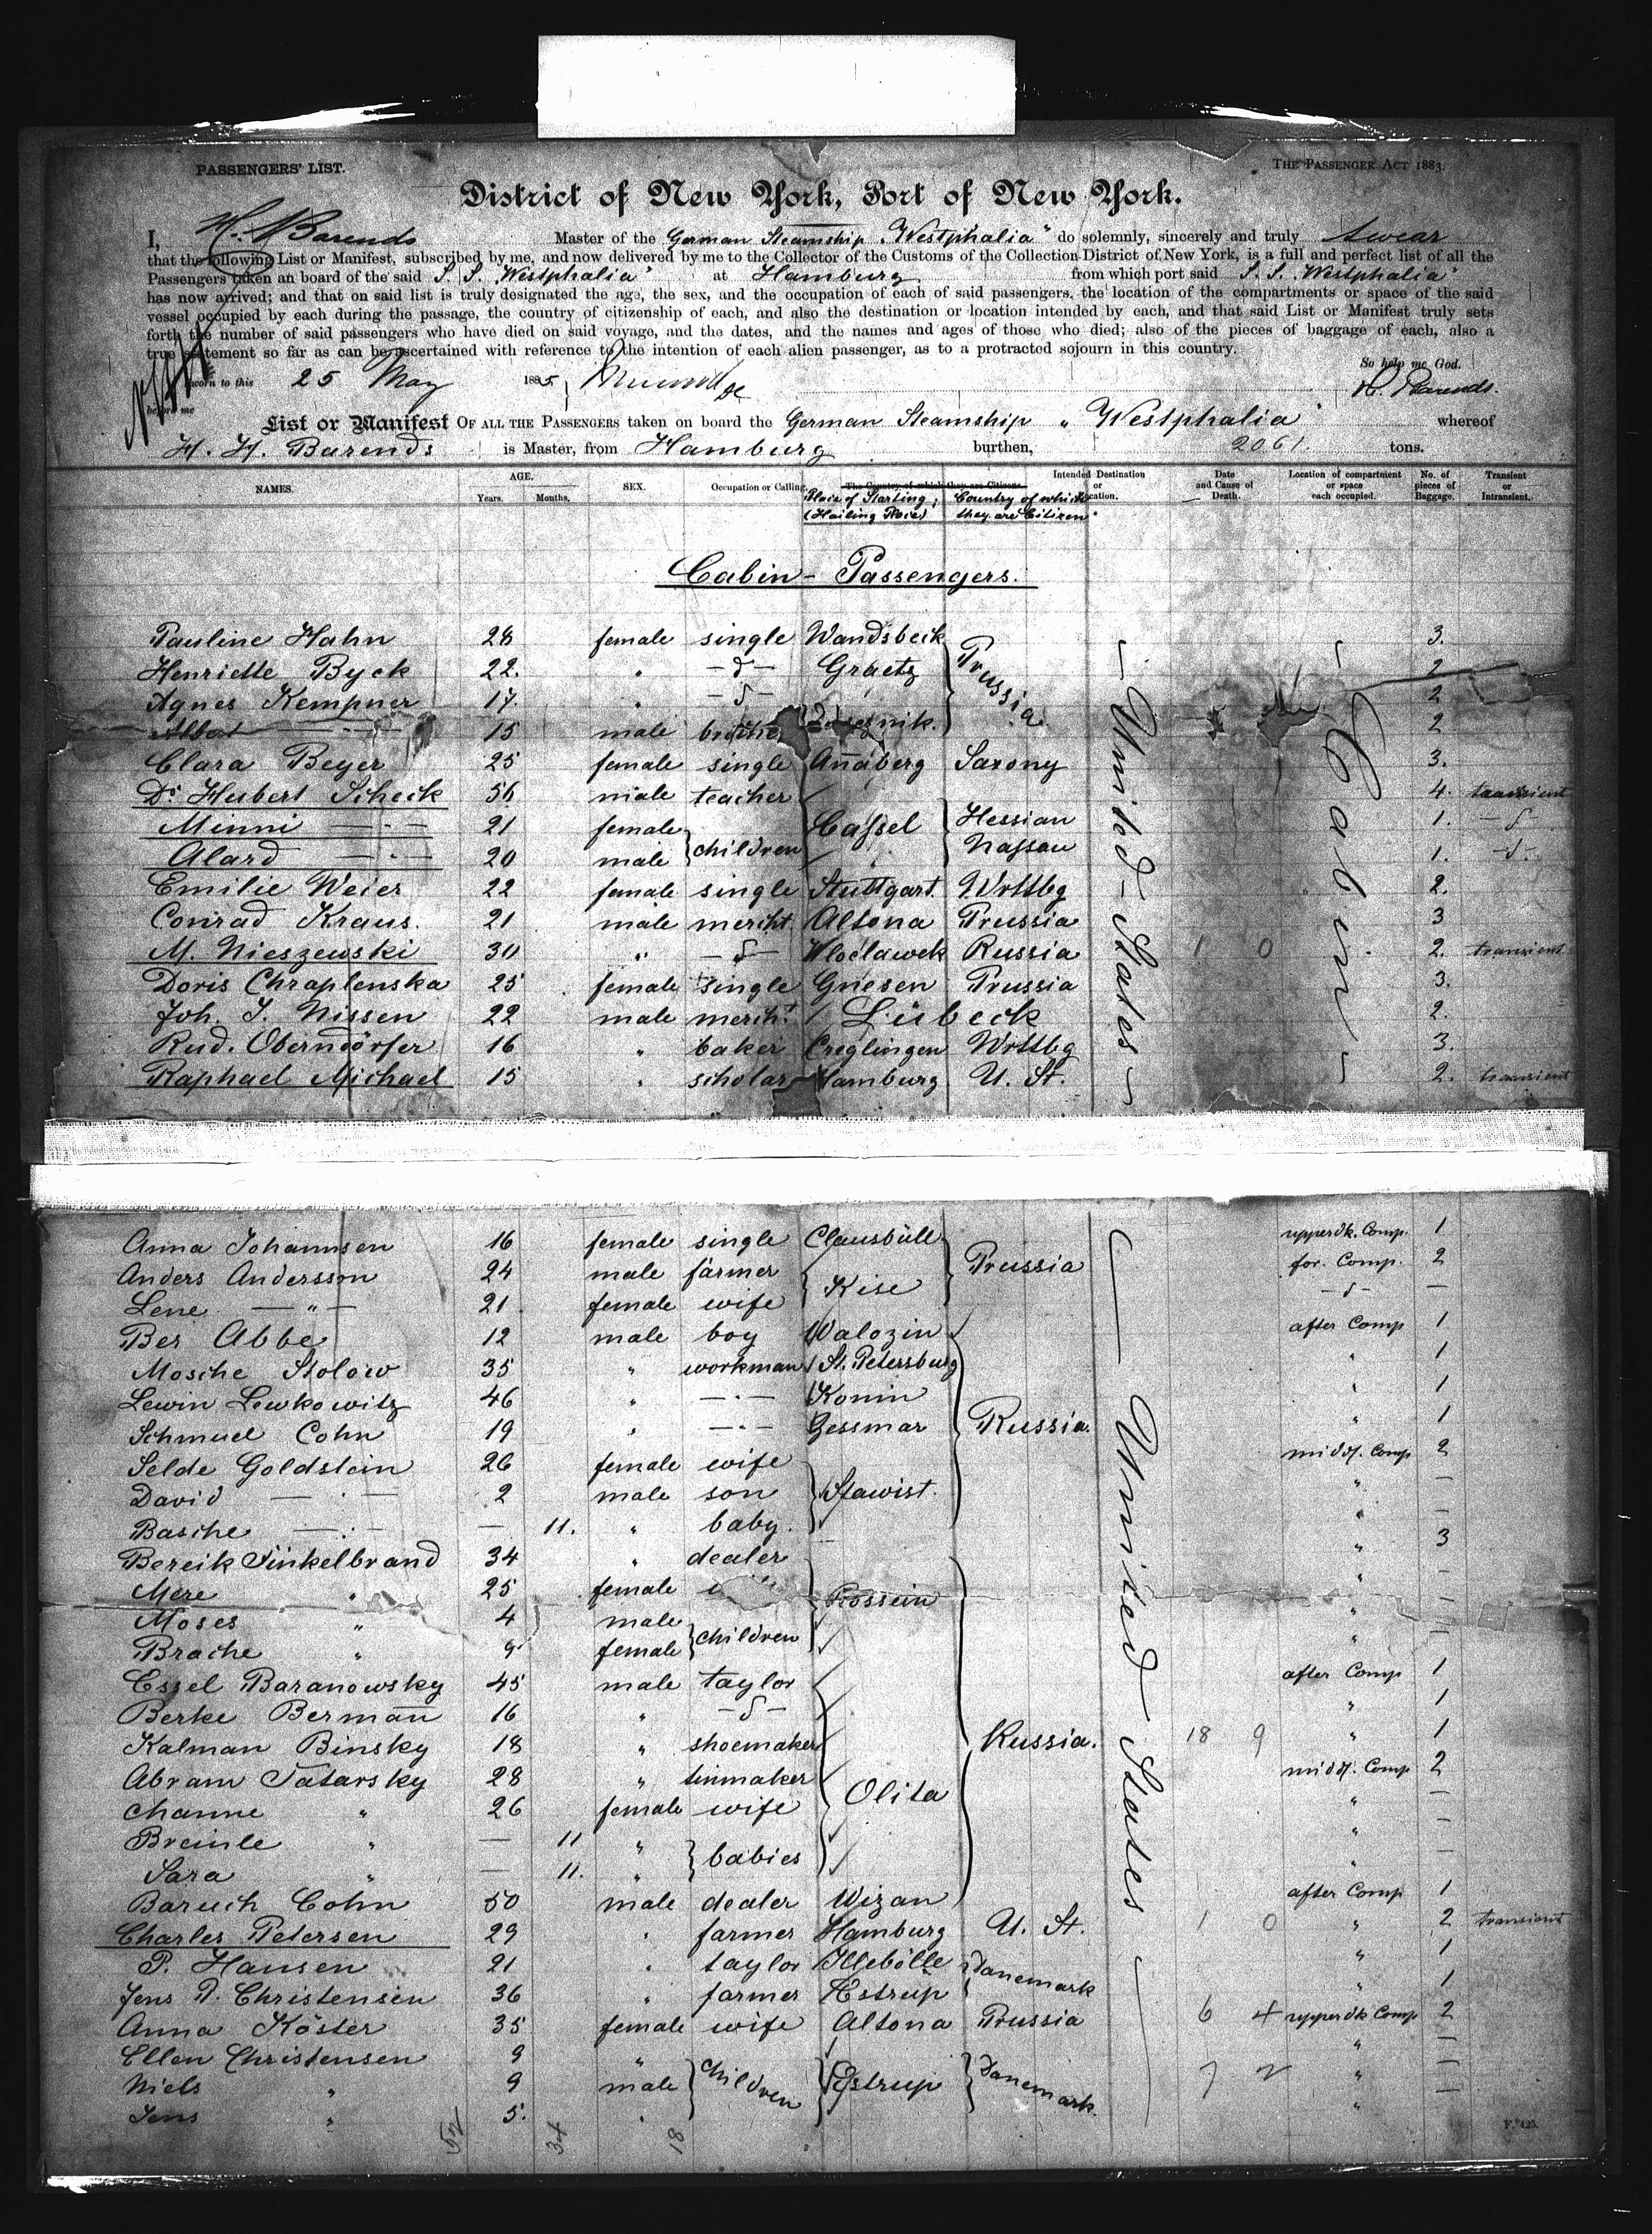 PASSENGERS' LIST. THE PASSENGER ACT 1883.
District of New York, Port of New York.
I, H. Barends Master of the German Steamship "Westphalia" do solemnly, sincerely and truly swear
that the following List or Manifest, subscribed by me, and now delivered by me to the Collector of the Customs of the Collection District of New York, is a full and perfect list of all the
Passengers taken an board of the said S. S. "Westphalia" at Hamburg from which port said S. S. "Westphalia"
has now arrived; and that on said list is truly designated the age, the sex, and the occupation of each of said passengers, the location of the compartments or space of the said
vessel occupied by each during the passage, the country of citizenship of each, and also the destination or location intended by each, and that said List or Manifest truly sets
forth the number of said passengers who have died on said voyage, and the dates, and the names and ages of those who died; also of the pieces of baggage of each, also a
true statement so far as can be ascertained with reference to the intention of each alien passenger, as to a protracted sojourn in this country.
So help me God.
Sworn to this 25 May 1885 H. Barends.
before me
List or Manifest OF ALL THE PASSENGERS taken on board the German Steamship "Westphalia" whereof
H. H. Barends is Master, from Hamburg burthen, 2061. tons.
NAMES. AGE. Years. Months. SEX. Occupation or Calling. The Country of which they are Citizens. Intended Destination or Location. Date and Cause of Death. Location of compartment or space each occupied. No. of pieces of Baggage. Transient or Intransient.
Place of Starting; (Hailing Place) Country of which they are Citizen
Cabin - Passengers.
Pauline Hahn 28 female single Wandsbeck 3.
Henriette Byck 22. " -d- Graetz Prussia 2
Agnes Kempner 17. " -d- 2
Albert - " - 15 male 2.
Clara Beyer 25 female single Annaberg Saxony 3.
Dr. Hubert Scheck 56 male teacher 4. transient
Minni - " - 21 female children Cassel Hessian 1. -d-
Alard - " - 20 male Nassau 1. -d-
Emilie Weier 22 female single Stuttgart. Wrttbg 2.
Conrad Kraus. 21 male mercht. Altona Prussia 3
M. Nieszewski 30 " -d- Wloclawek Russia 1 0 2. transient
Doris Chraplenska 25 female single Gnesen Prussia 3.
Joh. J. Nissen 22 male mercht. Lübeck 2.
Rud. Oberndörfer 16 " baker Creglingen Wrttbg 3.
Raphael Michael 15 " scholar Hamburg U. St. 2. transient
United - States
Cabin
Anna Johannsen 16 female single Clausbüll upperdk. Comp. 1
Anders Andersson 24 male farmer Kise Prussia for. Comp. 2
Lene - " - 21 female wife -d- -
Ber Abbe 12 male boy Walozin after Comp 1
Mosche Stolow 35 " workman St. Petersburg " 1
Lewin Lewkowitz 46 " - " - Konin " 1
Schmuel Cohn 19 " - " - Zessmar Russia. " 1
Selde Goldstein 26 female wife midd. Comp 2
David - " - 2 male son Stawist. " -
Basche - " - - 11. " baby. " -
Bereik Finkelbrand 34 " dealer " 3
Mere " 25 female Rossein " -
Moses " 4 male children " -
Brache " 9 female " -
Essel Baranowsky 45 male taylor after Comp 1
Berke Bermann 16 " -d- " 1
Kalman Binsky 18 " shoemaker Russia. 18 9 " 1
Abram Tatarsky 28 " tinmaker Olita midd. Comp 2
Channe " 26 female wife " -
Breinle " - 11 " babies " -
Sara " - 11. " " -
Baruch Cohn 50 male dealer Wizan after Comp 1
Charles Petersen 29 " farmer Hamburg U. St. 1 0 " 2 transient
P. Hansen 21 " taylor Illebölle Danemark " 1
Jens P. Christensen 36 " farmer Estrup " 1
Anna Köster 35 female wife Altona Prussia 6 4 upperdk Comp 2
Ellen Christensen 9 " children Estrup Danemark. " -
Niels " 9 male 7 2 " -
Jens " 5. " " -
United States
52 34 18
F. 425.